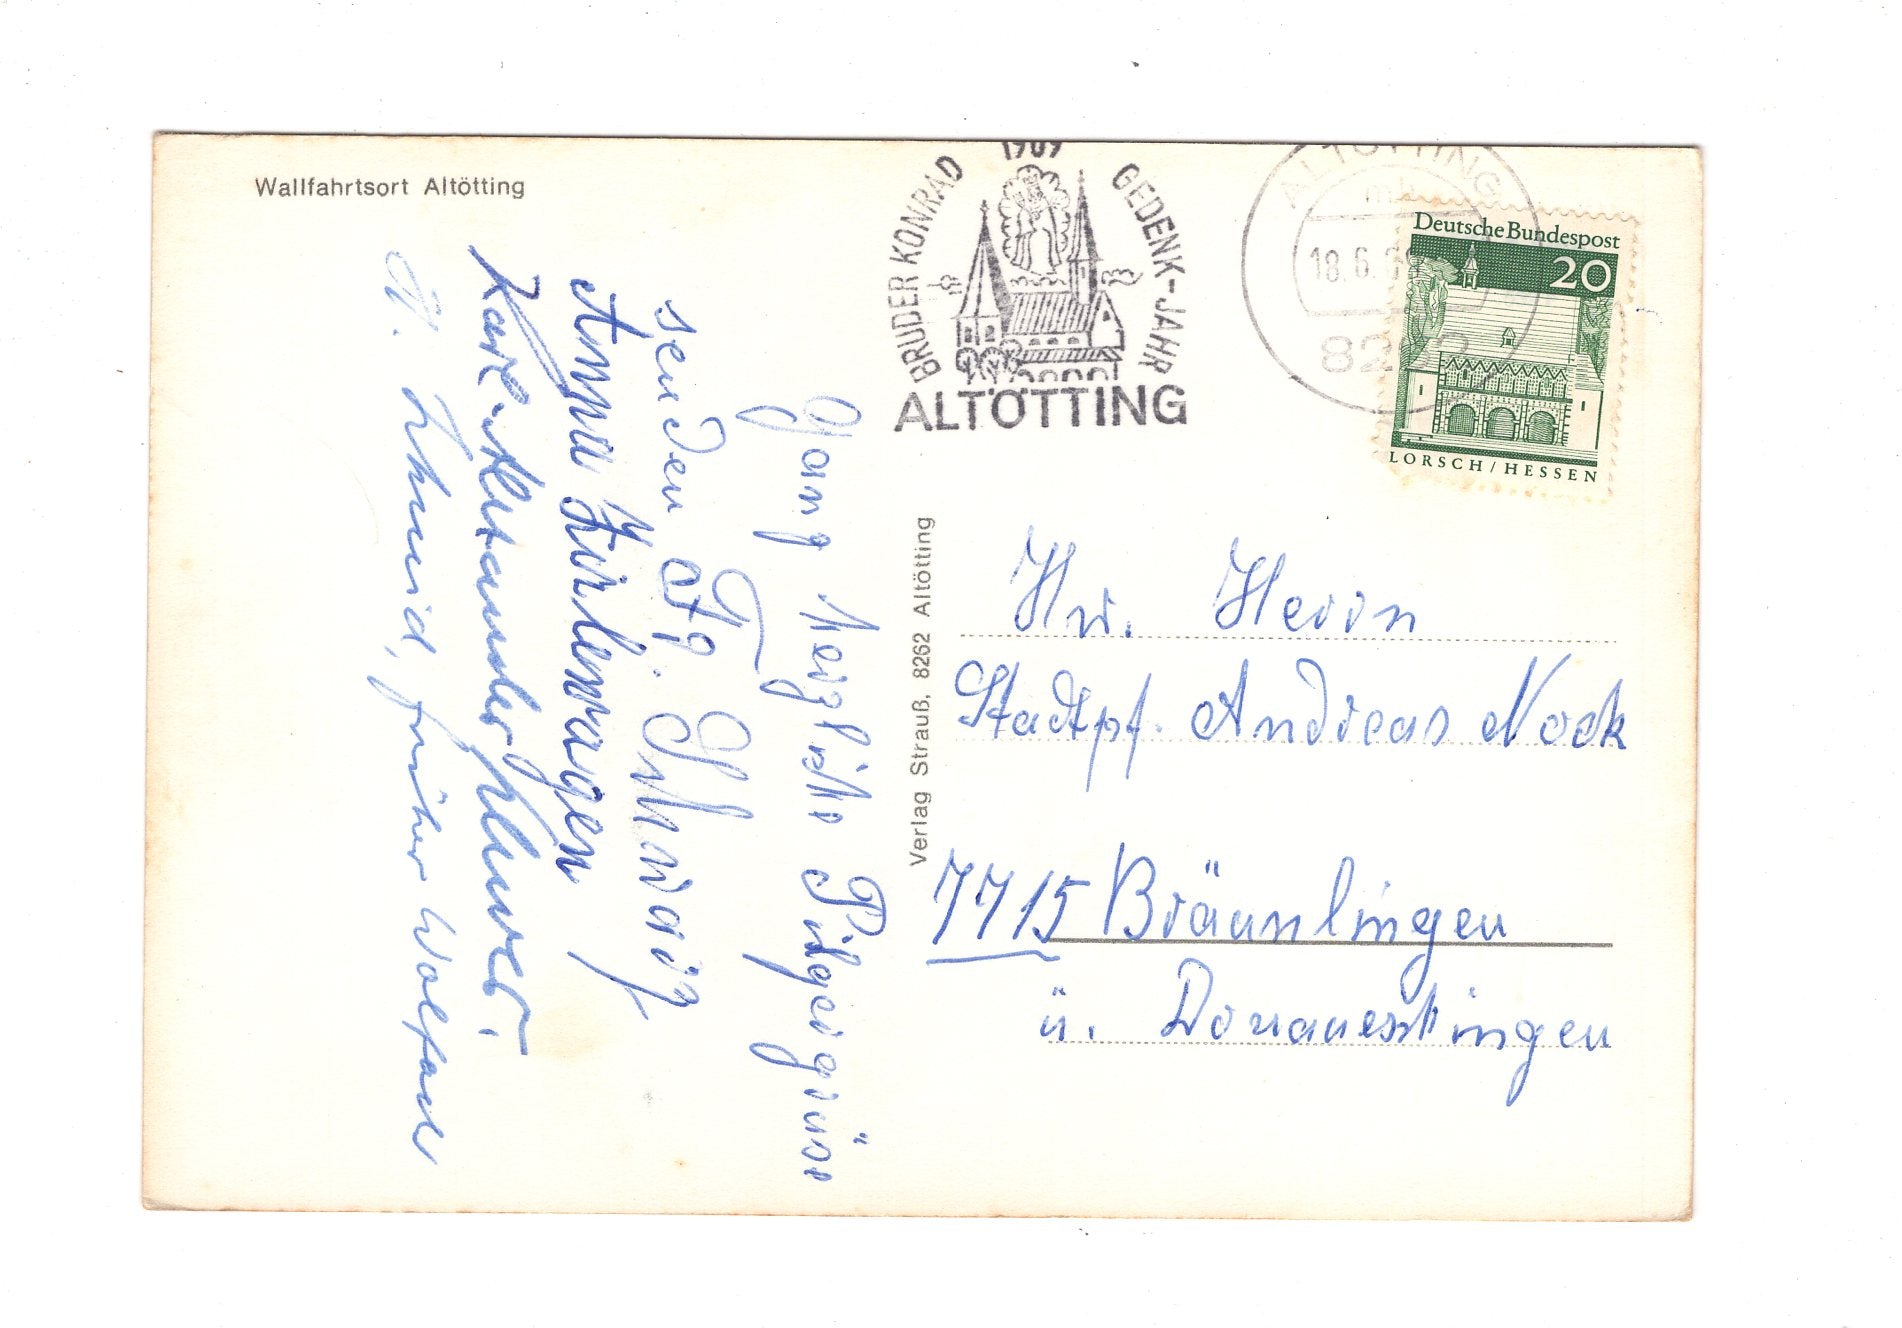 Wallfahrtsort Altötting
BRUDER KONRAD 1969 GEDENK-JAHR
ALTÖTTING
ALTÖTTING
18.6.69
8262
Deutsche Bundespost
20
LORSCH/HESSEN
Ganz herzliche Pilgergrüße
senden Ihr. Schwarz
Anna
Schmid, früher Wolfach
Verlag Strauß, 8262 Altötting
Hw. Herrn
Stadtpf. Andreas Nock
7715 Bräunlingen
ü. Donaueschingen